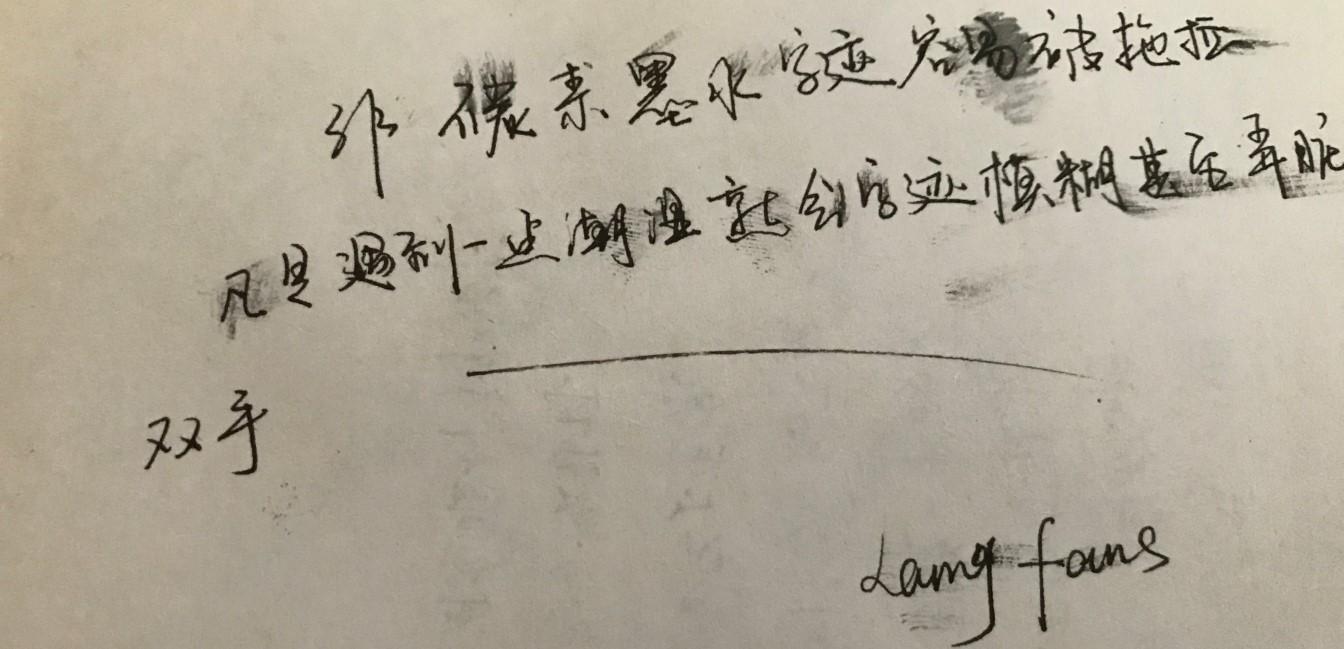 碳素墨水字迹容易被拖拉
凡是遇到一点潮湿就会字迹模糊甚至弄脏
双手
Lamy fans